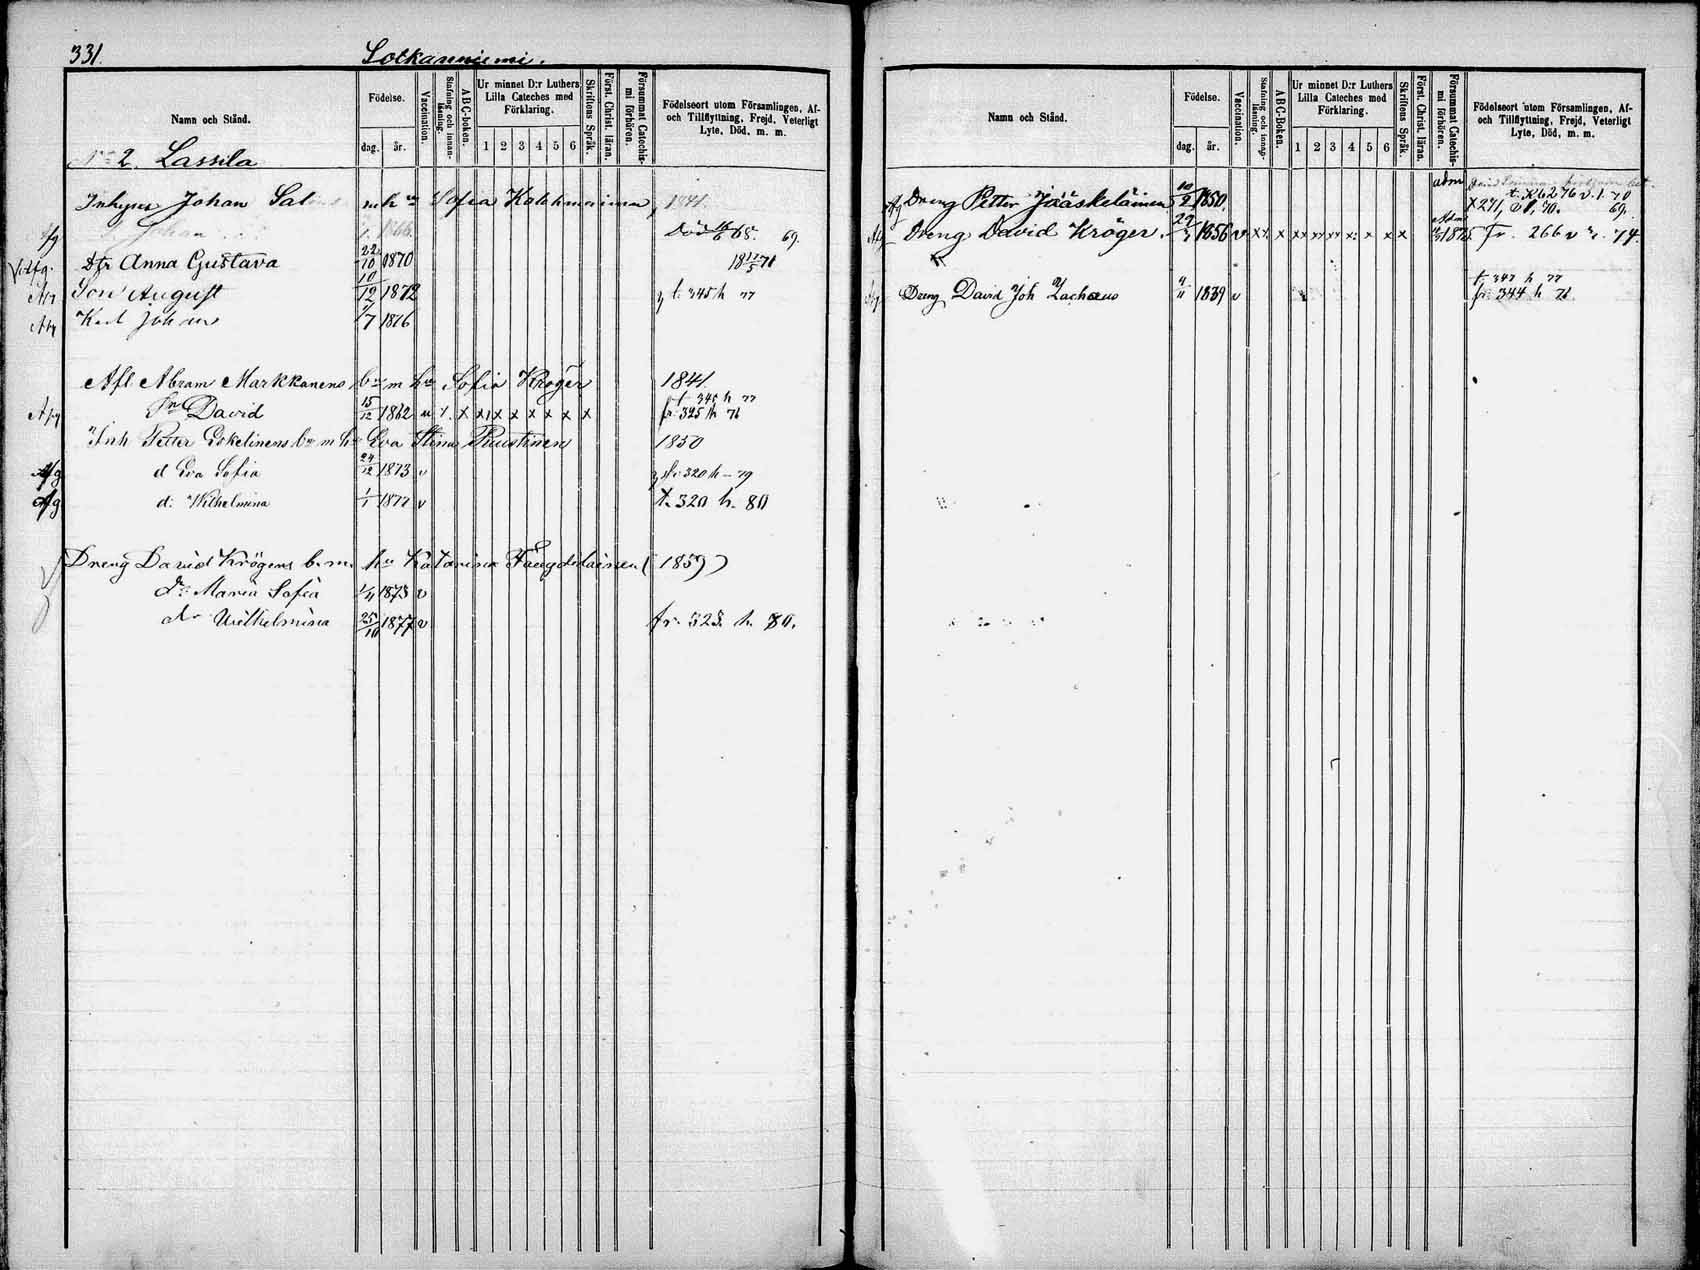 331.
Lotkanniemi.
Namn och Stånd.
Födelse.
dag. år.
Vaccination.
Stafning och innan-läsning.
ABC-boken.
Ur minnet D:r Luthers Lilla Cateches med Förklaring.
1 2 3 4 5 6
Skriftens Språk.
Först. Christ. läran.
Försummat Catechis-mi förhören.
Födelseort utom Församlingen, Af- och Tillflyttning, Frejd, Veterligt Lyte, Död, m. m.
No 2. Lassila
Inhyses Johan m h Sofia 1841.
Johan 1866. Död 68. 69.
Dtr Anna Gustava 22/10 1870 18 11/5 71
Son August 10/12 1872 t. 345 h 77
Karl Johan 1/7 1876
Afl Abram Markkanens b m h Sofia Kröger 1841
Afg Sn David 15/12 1862 v x x x x x x x x t 345 h 77
fr. 325 h 76
Inh Petter b m h Eva Stina Puustinen 1850
Afg d Eva Sofia 24/12 1873 v fr 320 h 79
Afg d: Wilhelmina 1/1 1877 v t. 320 h. 80
Dreng David Krögers b. m. h Katarina (1859)
dr Maria Sofia 1/4 1873 v
dr Wilhelmina 25/10 1877 v fr. 323. h. 80.
Namn och Stånd.
Födelse.
dag. år.
Vaccination.
Stafning och innan-läsning.
ABC-boken.
Ur minnet D:r Luthers Lilla Cateches med Förklaring.
1 2 3 4 5 6
Skriftens Språk.
Först. Christ. läran.
Försummat Catechis-mi förhören.
Födelseort utom Församlingen, Af- och Tillflyttning, Frejd, Veterligt Lyte, Död, m. m.
Afg Dreng Petter Jääskeläinen 10/2 1850. adm 276 v. 1. 70
X 271, 70. 69.
Afg Dreng David Kröger. 29/3 1856 v x x x xx xx xx x x x Adm 1875 fr. 266 v 74.
Afg Dreng David Joh Zachæus 4/11 1839 v t. 347 h 77
fr. 344 h 76.